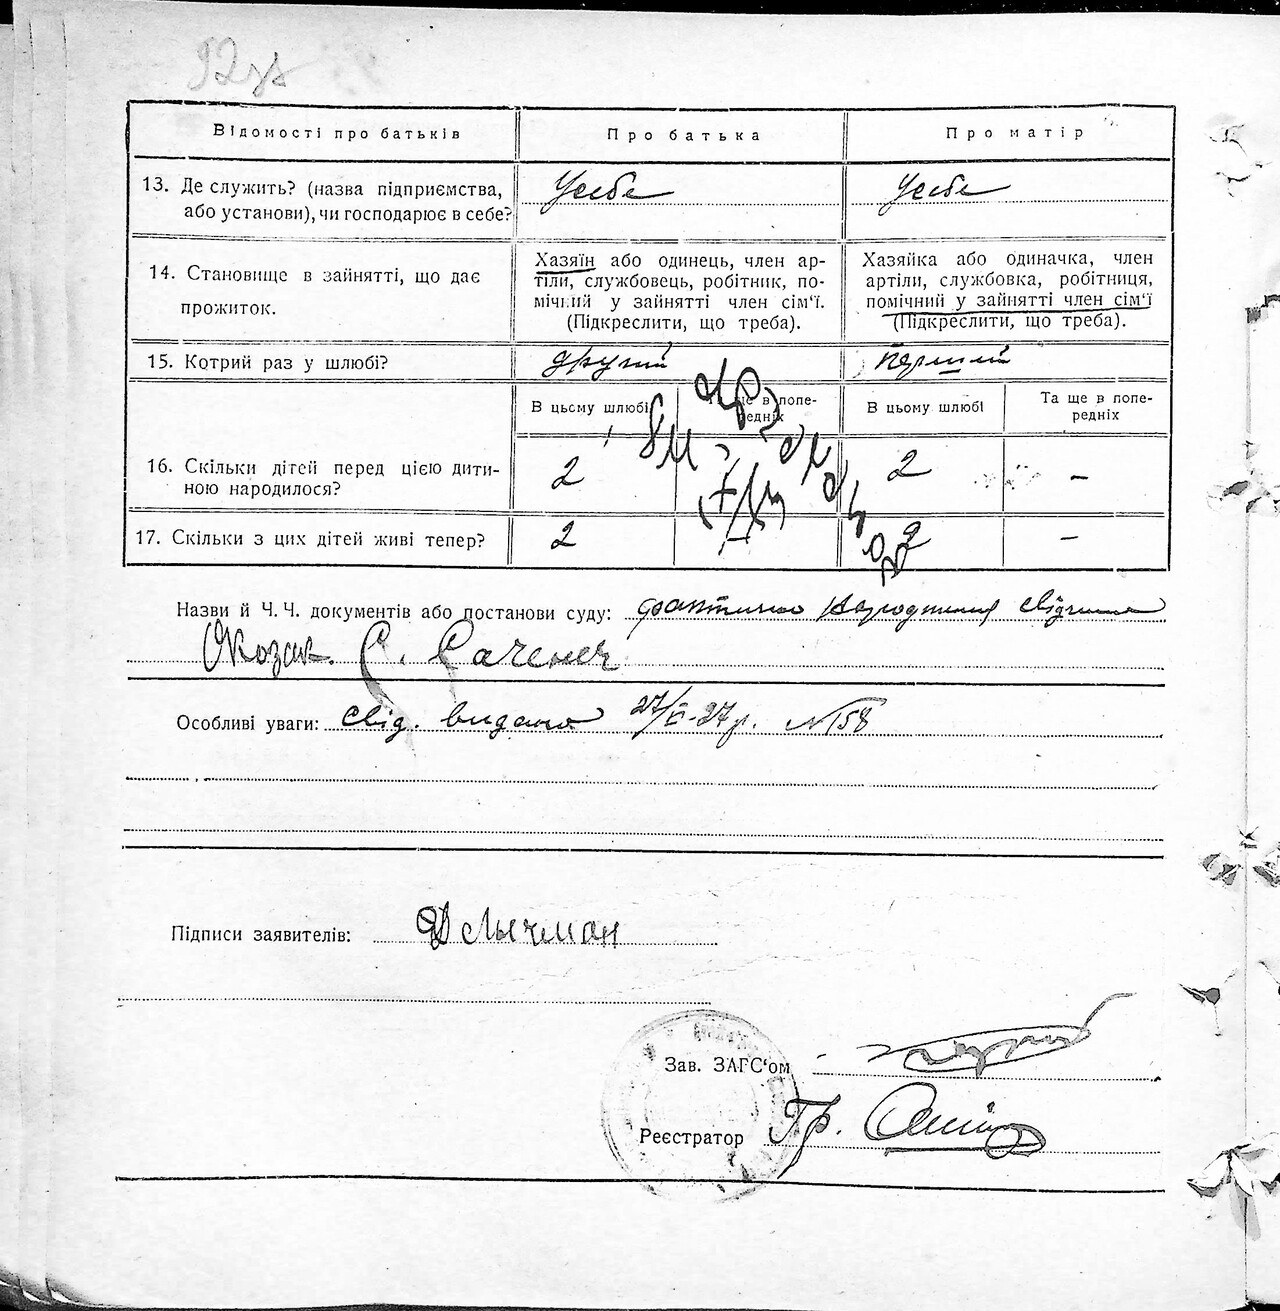 92зв
Відомості про батьків
Про батька
Про матір
13. Де служить? (назва підприємства,
або установи), чи господарює в себе?
У себе
У себе
14. Становище в зайнятті, що дає
прожиток.
Хазяїн або одинець, член ар-
тіли, службовець, робітник, по-
мічний у зайнятті член сім‘ї.
(Підкреслити, що треба).
Хазяйка або одиначка, член
артіли, службовка, робітниця,
помічний у зайнятті член сім‘ї
(Підкреслити, що треба).
15. Котрий раз у шлюбі?
другий
перший
В цьому шлюбі
Та ще в попе-
редніх
В цьому шлюбі
Та ще в попе-
редніх
16. Скільки дітей перед цією дити-
ною народилося?
2
2
–
17. Скільки з цих дітей живі тепер?
2
–
2
–
Назви й Ч. Ч. документів або постанови суду:
народження
Козак. С.
Особливі уваги: свід. видано 27/ -27р. №158
Підписи заявителів:
Зав. ЗАГС‘ом
Реєстратор Гр.